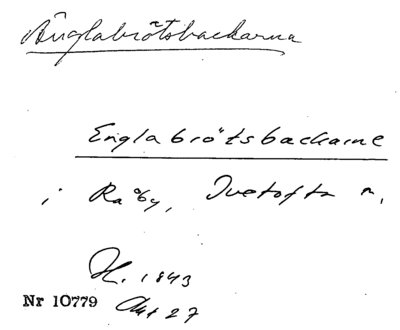 Änglabrötsbackarna
Englabrötsbackarne
i Råby, Ivetofta n,
H. 1843
Nr 10779 Akt 27